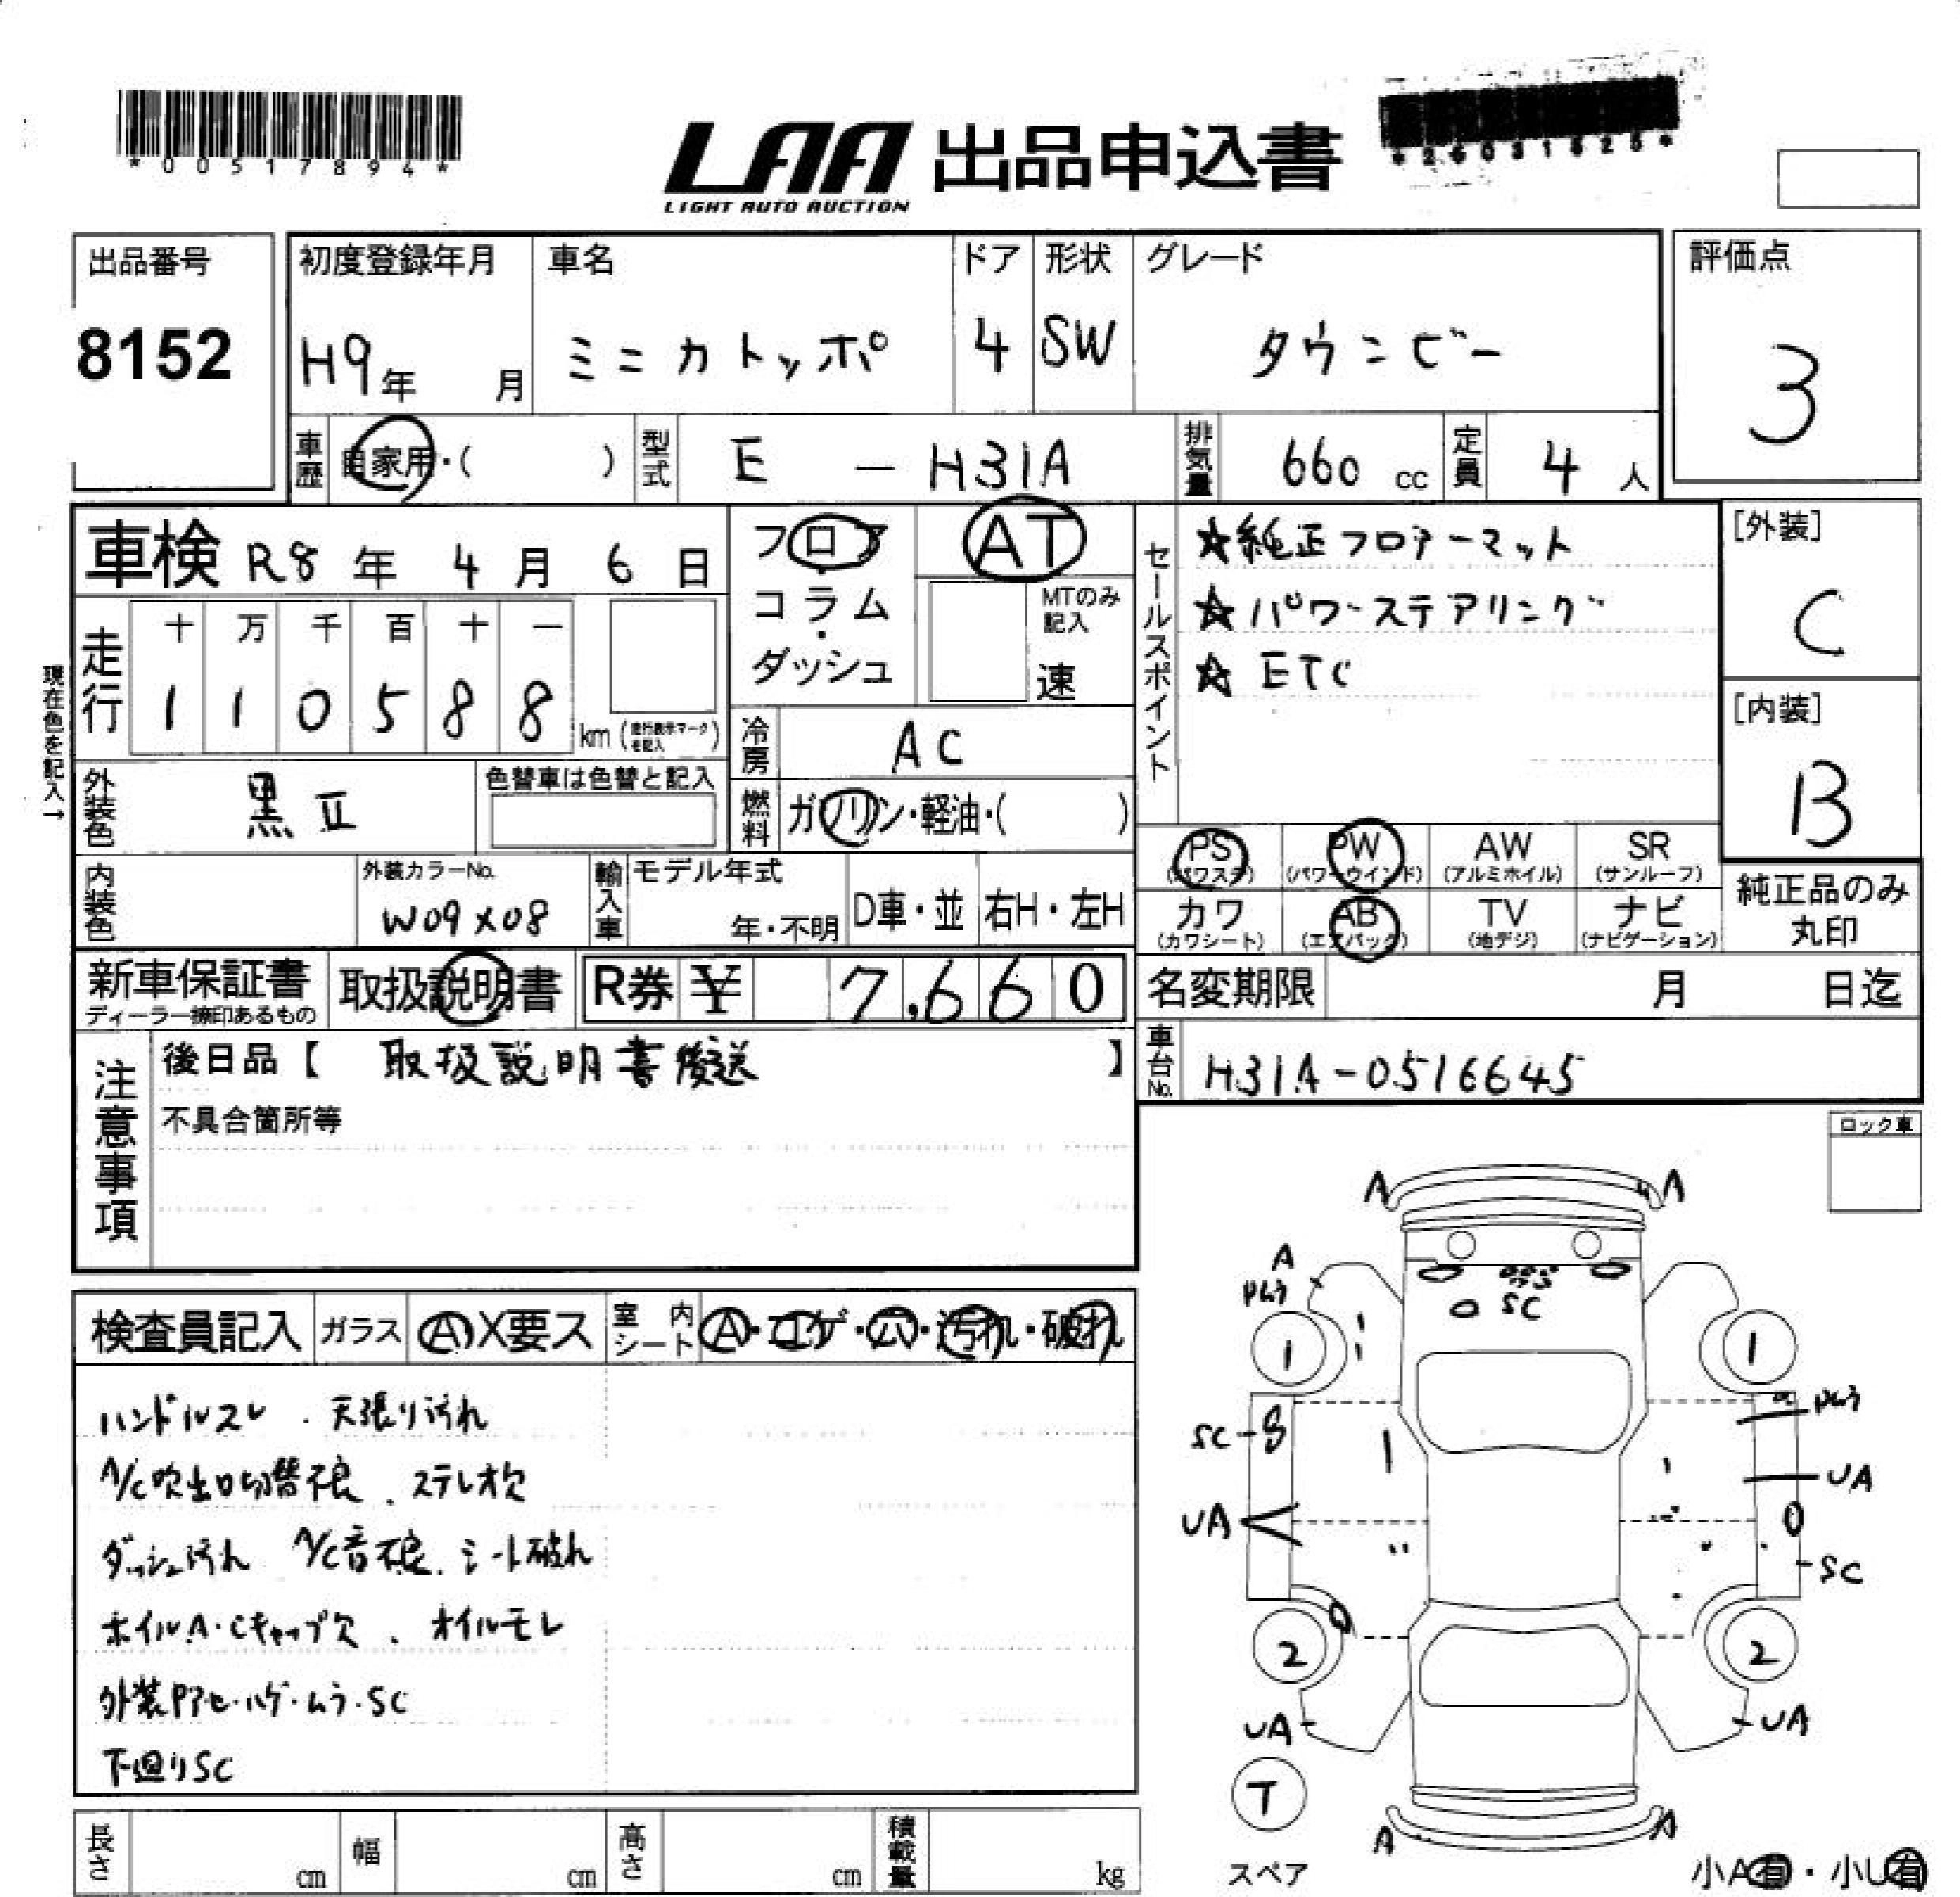 *00517894*
LAA 出品申込書
LIGHT AUTO AUCTION
出品番号
8152
初度登録年月
H9年 月
車名
ミニカトッポ
ドア
4
形状
SW
グレード
タウンビー
評価点
3
車歴 自家用・( )
型式 E - H31A
排気量 660 cc
定員 4 人
車検 R8年 4月 6日
フロア・コラム・ダッシュ
AT
MTのみ記入
速
セールスポイント
☆純正フロアーマット
☆パワーステアリング
☆ETC
[外装]
C
[内装]
B
現在色を記入→
走行
十 万 千 百 十 一
1 1 0 5 8 8
km (走行表示マークを記入)
冷房 AC
外装色 黒Ⅱ
色替車は色替と記入
燃料 ガソリン・軽油・( )
内装色
外装カラーNo.
W09X08
輸入車 モデル年式
年・不明
D車・並
右H・左H
PS (パワステ)
PW (パワーウインド)
AW (アルミホイル)
SR (サンルーフ)
カワ (カワシート)
AB (エアバック)
TV (地デジ)
ナビ (ナビゲーション)
純正品のみ丸印
新車保証書
ディーラー捺印あるもの
取扱説明書
R券 ¥ 7,660
名変期限 月 日迄
注意事項
後日品【 取扱説明書後送 】
不具合箇所等
車台No. H31A-0516645
ロック車
検査員記入
ガラス A X要ス
室内シート A・コゲ・穴・汚れ・破れ
ハンドルスレ . 天張り汚れ
A/C吹出口切替不良 . ステレオ欠
ダッシュ汚れ A/C音不良 . シート破れ
ホイルA・Cキャップ欠 . オイルモレ
外装Pアセ・ハゲ・ムラ・SC
下廻りSC
A
A
A
Pムラ
SC
1
1
SC
Pムラ
UA
UA
SC
2
2
UA
UA
T
スペア
A
A
小A有・小U有
長さ cm
幅 cm
高さ cm
積載量 kg